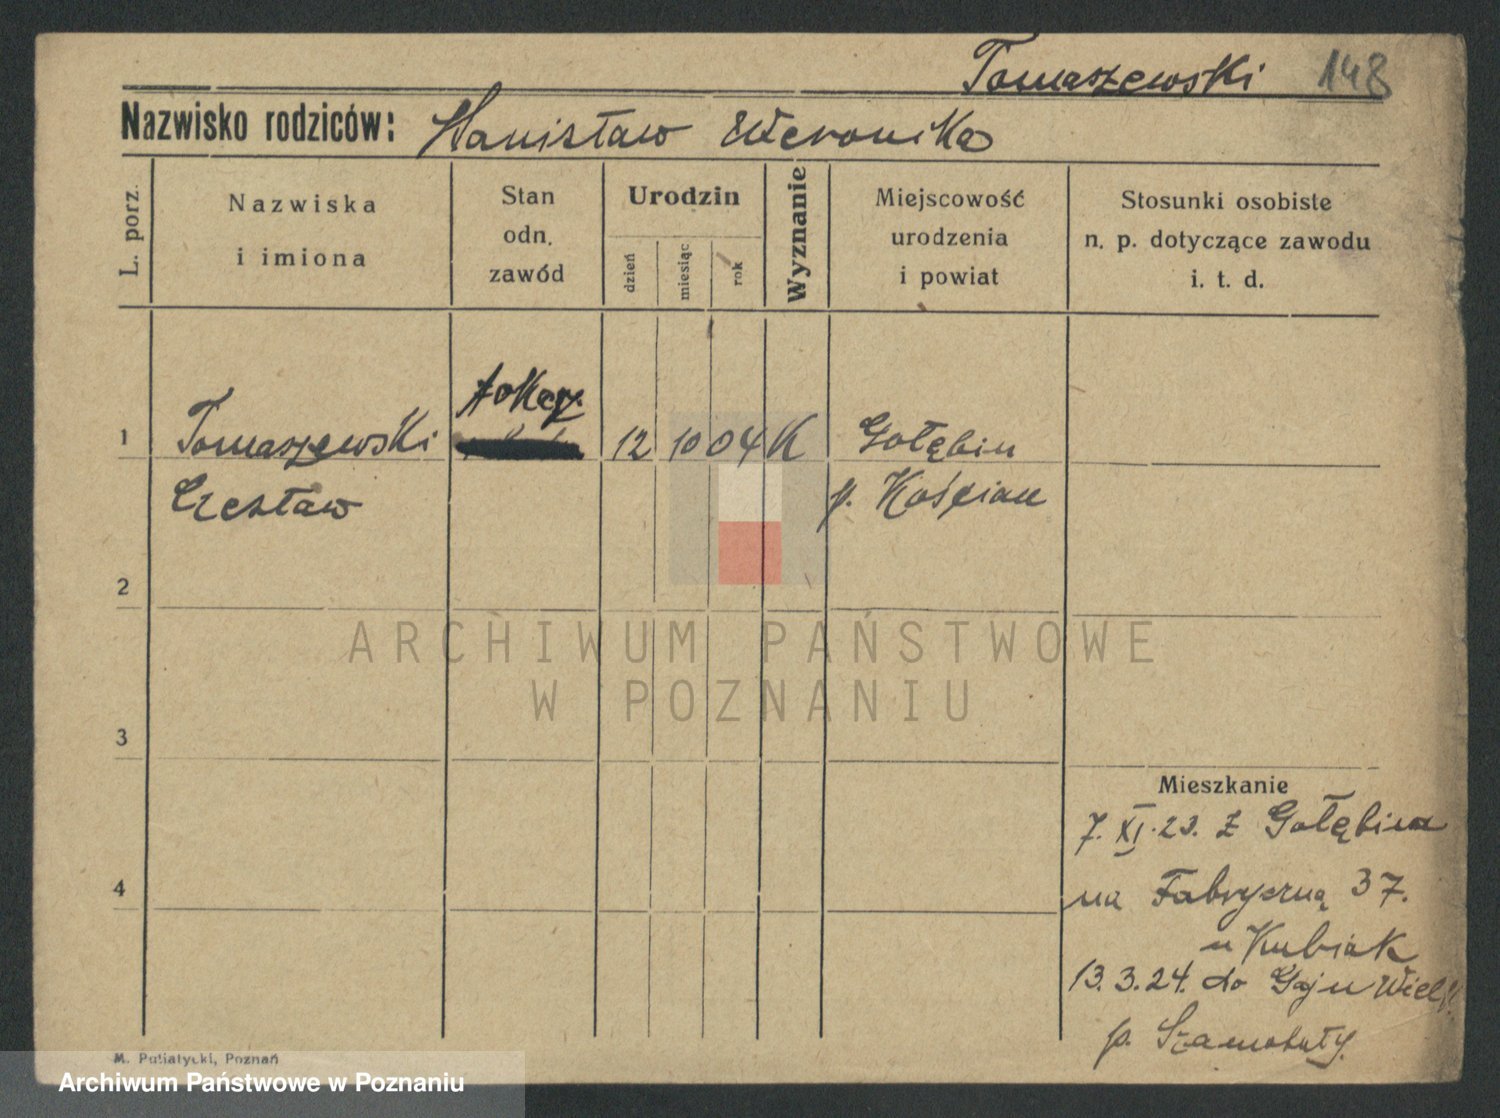 Tomaszewski 148
Nazwisko rodziców: Stanisław Weronika
L. porz.
Nazwiska
i imiona
Stan
odn.
zawód
Urodzin
dzień
miesiąc
rok
Wyznanie
Miejscowość
urodzenia
i powiat
Stosunki osobiste
n. p. dotyczące zawodu
i. t. d.
1 Tomaszewski 12 10 04 K Gołębin
Czesław p. Kościan
2
3
4
Mieszkanie
7. XI. 23. z Gołębina
na Fabryczną 37.
u Kubiak
13. 3. 24. do Gaju Wielk.
p. Szamotuły.
ARCHIWUM PAŃSTWOWE
W POZNANIU
M. Putiatycki, Poznań
Archiwum Państwowe w Poznaniu